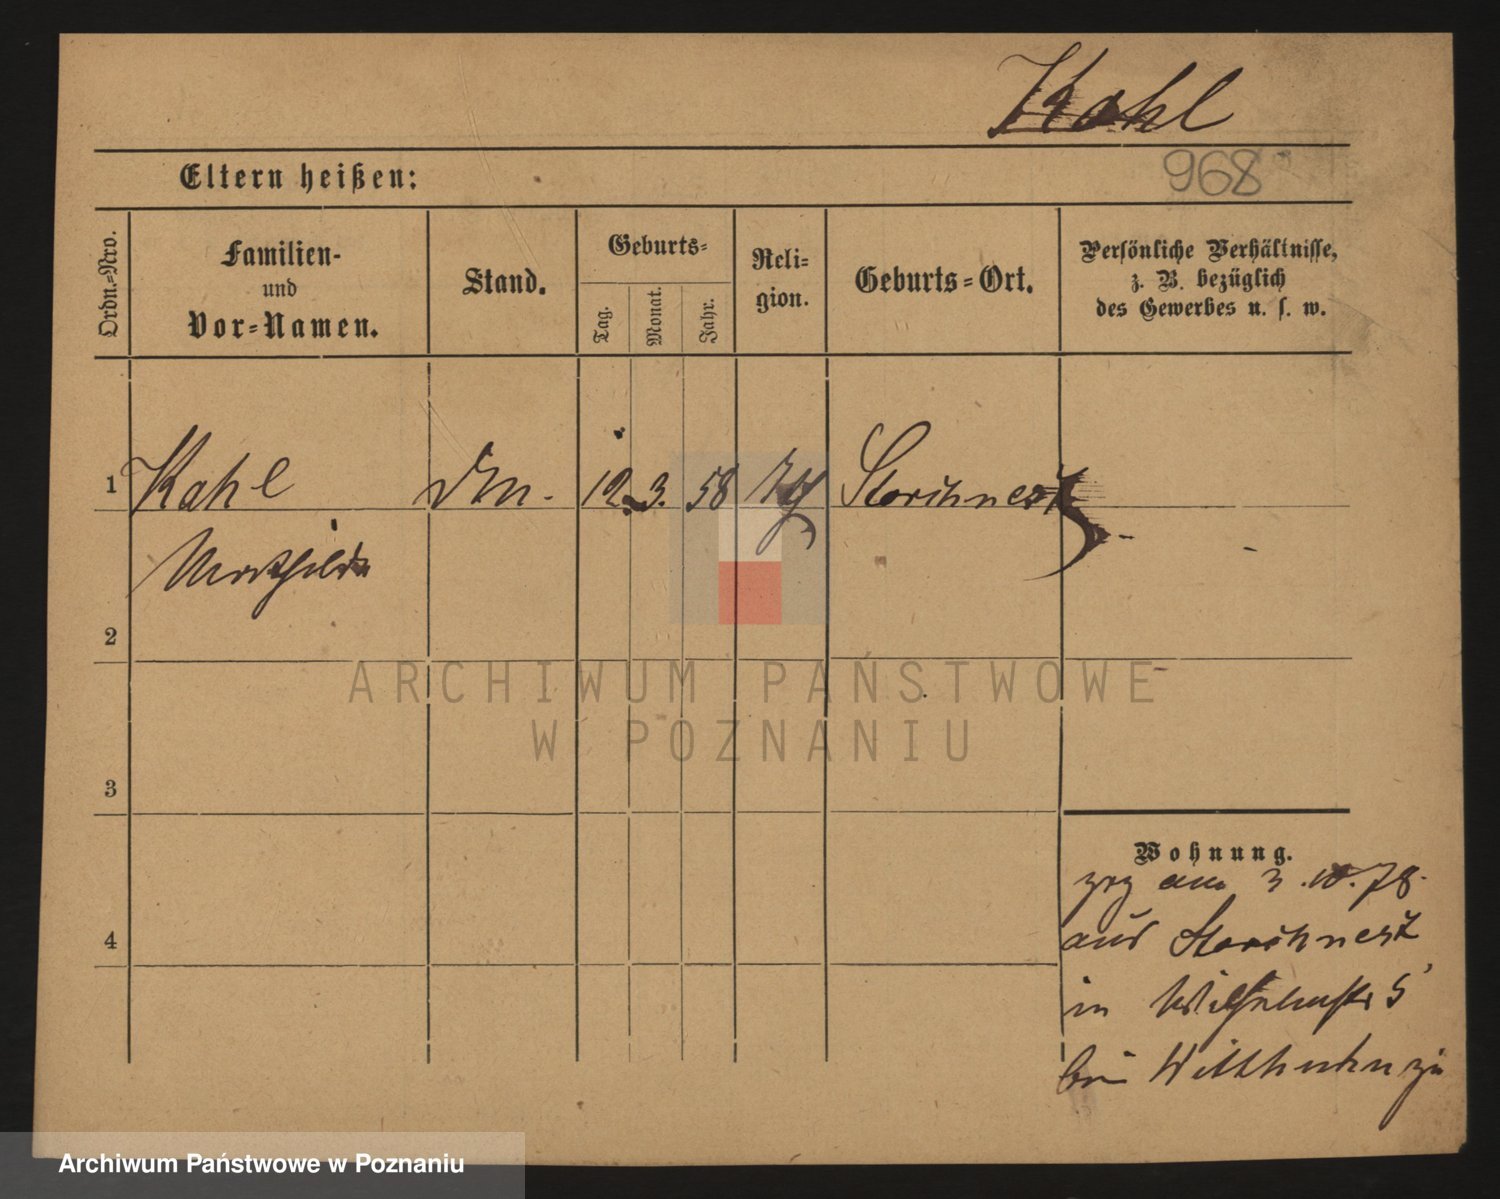 Kahl
968
Eltern heißen:
Ordn.-Nro.
Familien-
und
Vor-Namen.
Stand.
Geburts-
Tag.
Monat.
Jahr.
Reli-
gion.
Geburts-Ort.
Persönliche Verhältnisse,
z. B. bezüglich
des Gewerbes u. s. w.
1 Kahl 12. 3. 58 Storchnest
Mathilde
2
3
4
Wohnung.
zog am 3.10.78.
aus Storchnest
in Wilhelmstr 5
bei
ARCHIWUM PAŃSTWOWE
W POZNANIU
Archiwum Państwowe w Poznaniu